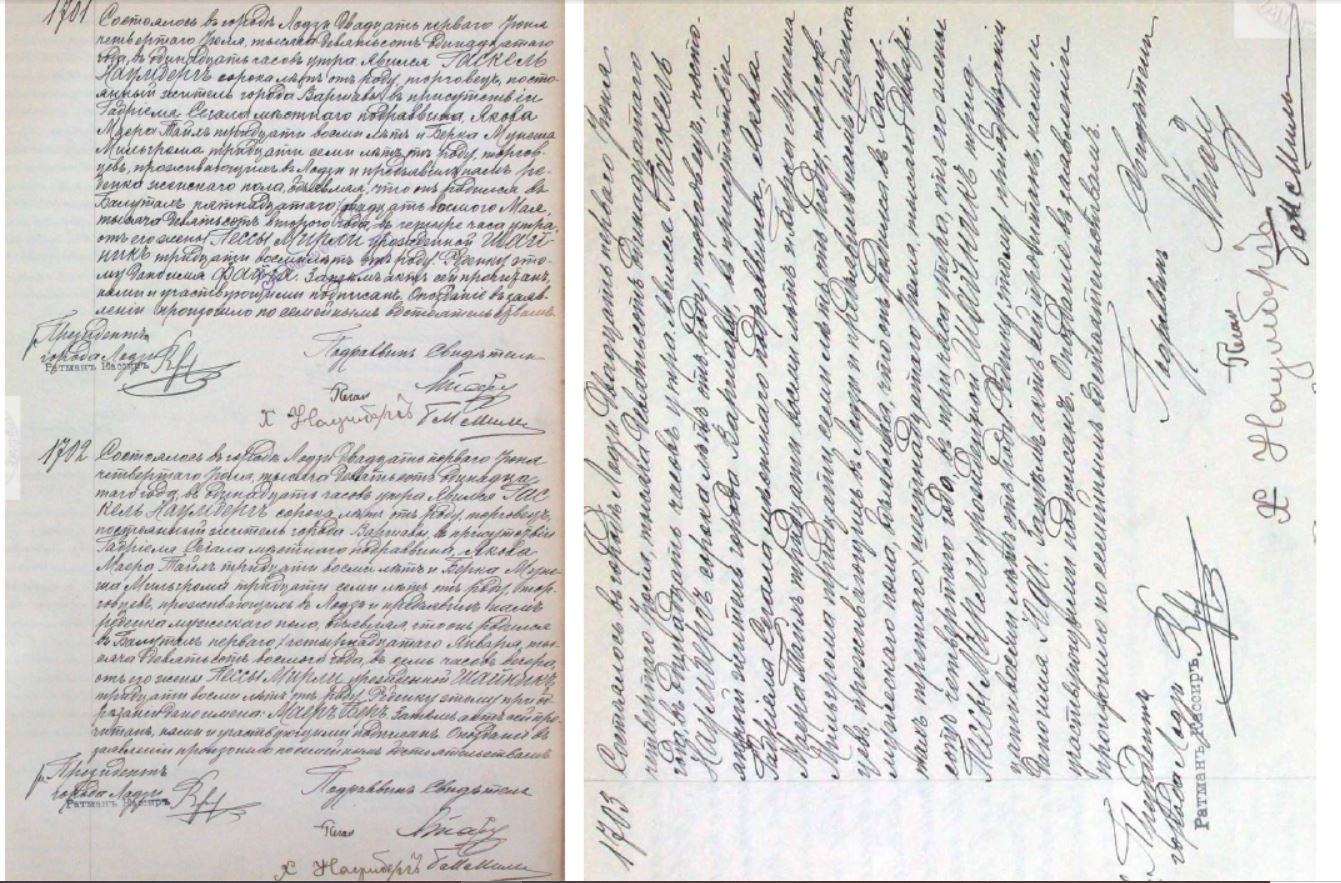 1701
Состоялось въ городѣ Лодзи двадцать перваго Іюня
четвертаго Іюля, тысяча девятьсотъ одинадцатаго
года, въ одинадцать часовъ утра. Явился Гаскель
Наумбергъ сорока лѣтъ отъ роду, торговецъ, посто-
янный житель города Варшавы, въ присутствіи
Габріеля Сегала мѣстнаго подраввина, Якова
Маера Тайлъ тридцати восьми лѣтъ и Берка Мунеша
Мильгрома тридцати семи лѣтъ отъ роду, торгов-
цевъ, проживающихъ въ Лодзи и предъявилъ намъ ре-
бенка женскаго пола, объявляя, что онъ родился въ
Балутахъ пятнадцатаго/двадцать восьмого Мая,
тысяча девятьсотъ второго года, въ четыре часа утра
отъ его жены Пессы Мирли урожденной Шай-
никъ тридцати восьми лѣтъ отъ роду. Ребенку это-
му дано имя Затѣмъ актъ сей прочитанъ,
нами и участвующими подписанъ. Опозданіе въ заяв-
леніи произошло по семейнымъ обстоятельствамъ
Президентъ
города Лодзи
Ратманъ Кассиръ
Подраввинъ Свидѣтели
Х Наумбергъ
1702
Состоялось въ городѣ Лодзи двадцать перваго Іюня
четвертаго Іюля, тысяча девятьсотъ одинадца-
таго года, въ одинадцать часовъ утра. Явился Гас
кель Наумбергъ сорока лѣтъ отъ роду, торговецъ,
постоянный житель города Варшавы, въ присутствіи
Габріеля Сегала мѣстнаго подраввина, Якова
Маера Тайлъ тридцати восьми лѣтъ и Берка Муне-
ша Мильгрома тридцати семи лѣтъ отъ роду, тор-
говцевъ, проживающихъ въ Лодзи и предъявилъ намъ
ребенка мужескаго пола, объявляя, что онъ родился
въ Балутахъ перваго/четырнадцатаго Января, ты-
сяча девятьсотъ восьмого года, въ семь часовъ вечера,
отъ его жены Пессы Мирли урожденной Шайникъ,
тридцати восьми лѣтъ отъ роду. Ребенку этому при об-
рѣзаніи дано имена: Маеръ Беръ. Затѣмъ актъ сей про-
читанъ, нами и участвующими подписанъ. Опозданіе въ
заявленіи произошло по семейнымъ обстоятельствамъ
Президентъ
города Лодзи
Ратманъ Кассиръ
Подраввинъ Свидѣтели
Х Наумбергъ
1703
Состоялось въ городѣ Лодзи двадцать перваго Іюня
четвертаго Іюля, тысяча девятьсотъ одинадцатаго
года, въ одинадцать часовъ утра. Явился Гаскель
Наумбергъ сорока лѣтъ отъ роду, торговецъ, посто-
янный житель города Варшавы, въ присутствіи
Габріеля Сегала мѣстнаго подраввина, Якова
Маера Тайлъ тридцати восьми лѣтъ и Берка Мунеша
Мильгрома тридцати семи лѣтъ отъ роду, торгов-
цевъ, проживающихъ въ Лодзи и предъявилъ намъ ребенка
мужескаго пола, объявляя, что онъ родился въ Балу-
тахъ третьяго/шестнадцатаго Іюня, тысяча девять-
сотъ четвертаго года, въ три часа утра, отъ его жены
Пессы Мирли урожденной Шайникъ, трид-
цати восьми лѣтъ отъ роду. Ребенку этому при обрѣзаніи
дано имя Затѣмъ актъ сей прочитанъ, нами и
участвующими подписанъ. Опозданіе въ заявленіи
произошло по семейнымъ обстоятельствамъ.
Президентъ
города Лодзи
Ратманъ Кассиръ
Х Наумбергъ